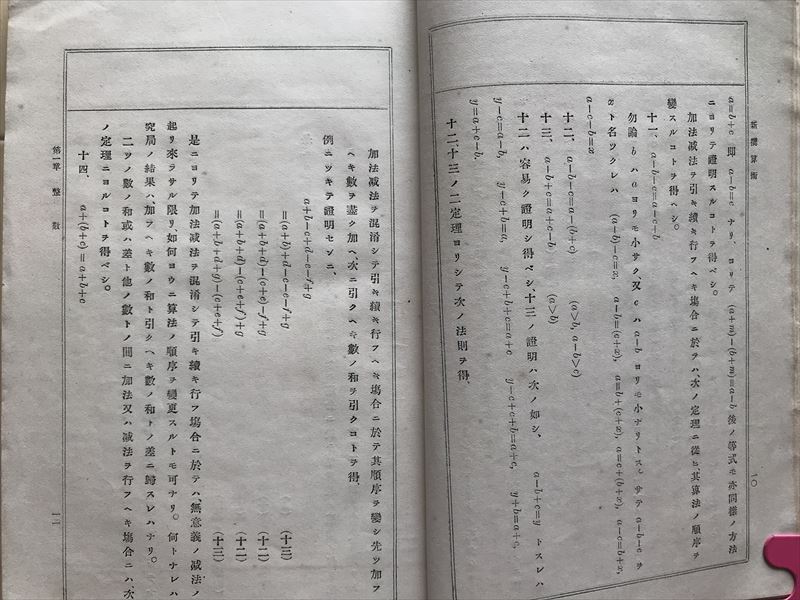 新撰算術
一〇
a=b+c 即 a-b=c ナリ、ヨリテ (a+m)-(b+m)=a-b 後ノ等式モ亦同樣ノ方法
ニヨリテ證明スルコトヲ得ベシ。
加法減法ヲ引キ續キ行フヘキ塲合ニ於テハ、次ノ定理ニ從ヒ、其算法ノ順序ヲ
變スルコトヲ得ベシ。
十一、 a-b-c=a-c-b
勿論 b ハ a ヨリモ小サク、又 c ハ a-b ヨリモ小ナリトス。サテ a-b-c ヲ
x ト名ツクレハ (a-b)-c=x a-b=(c+x), a=b+(c+x), a=c+(b+x), a-c=b+x,
a-c-b=x
十二、 a-b-c=a-(b+c) (a>b, a-b>c)
十三、 a-b+c=a+c-b. (a>b)
十二ハ容易ク證明シ得ベシ、十三ノ證明ハ次ノ如シ、 a-b+c=y トスレハ
y-c=a-b, y-c+b=a, y-c+b+c=a+c y-c+c+b=a+c, y+b=a+c,
y=a+c-b.
十二、十三ノ二定理ヨリシテ次ノ法則ヲ得、
加法減法ヲ混淆シテ引キ續キ行フヘキ塲合ニ於テ其順序ヲ變シ先ツ加フ
ヘキ數ヲ盡ク加ヘ、次ニ引クヘキ數ノ和ヲ引クコトヲ得、
例ニツキテ證明センニ、
a+b-c+d-e-f+g
=(a+b)+d-c-e-f+g (十三)
=(a+b+d)-(c+e)-f+g (十二)
=(a+b+d)-(c+e+f)+g (十二)
=(a+b+d+g)-(c+e+f) (十三)
是ニヨリテ加法減法ヲ混淆シテ引キ續キ行フ塲合ニ於テハ、無意義ノ減法ノ
起リ來ラサル限リ、如何ヨウニ算法ノ順序ヲ變更スルトモ可ナリ。何トナレハ
究局ノ結果ハ、加フヘキ數ノ和ト引クヘキ數ノ和トノ差ニ歸スレハナリ。
二ツノ數ノ和或ハ差ト他ノ數トノ間ニ加法又ハ減法ヲ行フヘキ塲合ニハ、次
ノ定理ニヨルコトヲ得ベシ。
十四、 a+(b+c)=a+b+c
第一章 整數
一一